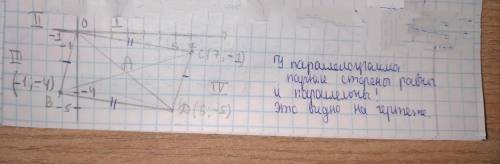 II
O
I
-1
-1
C(7,-1)
III
A
IV
(-1,-4)
B
-4
-5
D(6,-5)
У параллелограмма
парные стороны равны
и параллельны!
Это видно на чертеже.